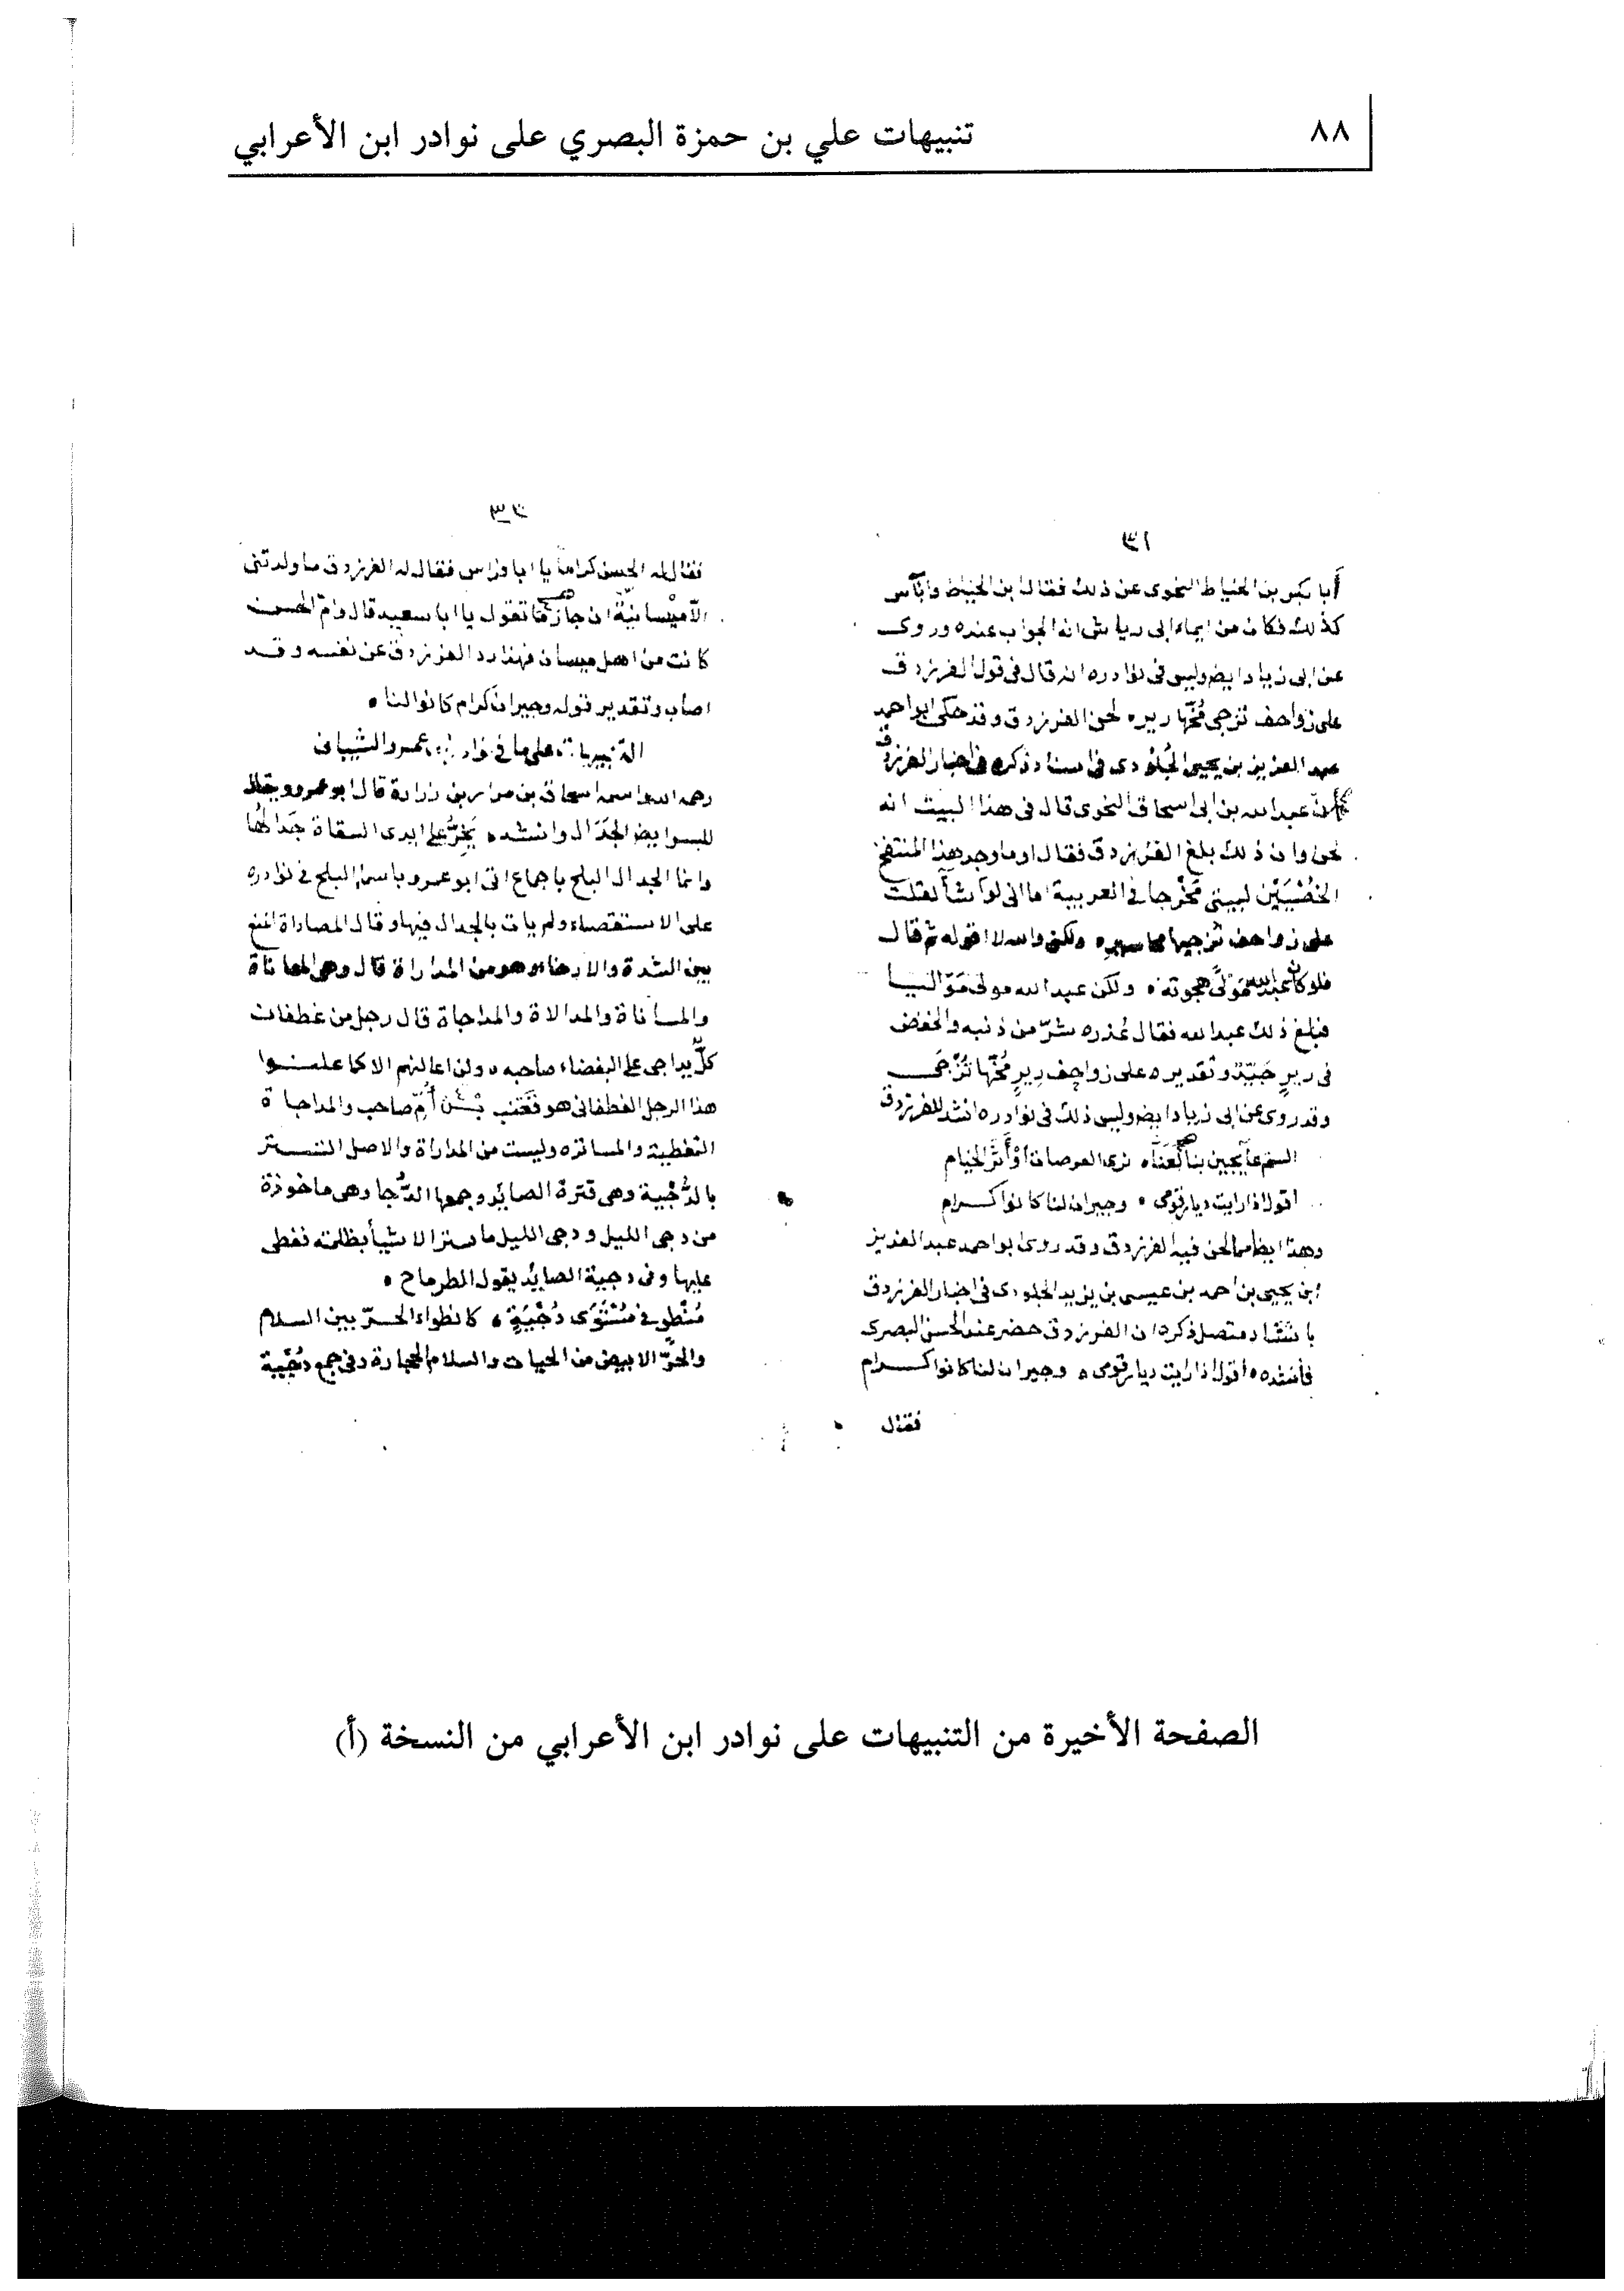 ٨٨
تنبيهات علي بن حمزة البصري على نوادر ابن الأعرابي
٣١
أبا بكر بن الخياط النحوى عن ذلك فقال ابن الخياط
كذلك فكان من ايماء الى رياش انه الجواب عنده وروى
عن ابى زياد ايضا وليس فى نوادره انه قال فى قول الفرزدق
على زواحف تزجى مُخّها رير ٥ لحن الفرزدق وقد حكى ابو احمد
عبد العزيز بن يحيى الجُلُودى فى اسناد ذكره فى اخبار الفرزدق
انّ عبد الله بن ابى اسحاق النحوى قال فى هذا البيت انه
لحن وان ذلك بلغ الفرزدق فقال اوما وجد هذا المنتفخ
الخُصْيَيْن لبيتى مَخْرجا فى العربية اما انى لو اشأ لقلت
على زواحف نزجيها محاسير ٥ ولكنى والله لا اقوله ثم قال
فلو كان عبد الله مَوْلًى هجوته ٥ ولكن عبد الله مولى مَوَاليا
فبلغ ذلك عبد الله فقال عُذره شرّ من ذنبه والخفض
فى ريرٍ جيّد وتقديره على زواحف رِيرٍ مُخّها تُزْجَى
وقد روى عن ابى زياد ايضا وليس ذلك فى نوادره انشد للفرزدق
الستم عايجين بنا لعَنّا ٥ نرى العرصات أوْ أَثَرَ الخيام
اقول اذا رايت ديار قومى ٥ وجيران لنا كانوا كرام
وهذا ايضا مما لحن فيه الفرزدق وقد روى ابو احمد عبد العزيز
ابن يحيى بن احمد بن عيسى بن يزيد الجلودى فى اخبار الفرزدق
متصل ذكره ان الفرزدق حضر عند الحسن البصرى
فأنشده ٥ اقول اذا رايت ديار قومى ٥ وجيران لنا كانوا كرام
فقال
٣٢
فقال له الحسن كراما يا ابا فراس فقال له الفرزدق ما ولدتنى
الّا ميْسانيّة ان جاز ما تقول يا ابا سعيد قال وامّ الحسن
كانت من اهل ميسان فهذا رد الفرزدق عن نفسه وقد
اصاب وتقدير قوله وجيران كرام كانوا لنا ٥
على ما فى نوادر عمرو الشيبانى
رحمه الله واسمه اسحاق بن مرار بن زرارة قال ابو عمرو ويقال
للبسر ايضا الجَدَال وانشد ٥ يَخِرُّ على ايدى السقاة جَدَالُها
وانما الجدال البلح باجماع اتى ابو عمرو باسماء البلح فى نوادره
على الاستقصاء ولم يات بالجدال فيها وقال المصاداة
بين الشدة والارخاء وهو من المداراة قال وهى المعاناة
والمساناة والمدالاة والمداجاة قال رجل من غطفان
كلٌّ يداجى على البغضاء صاحبه ٥ ولن اعالنهم الا كما علنوا
هذا الرجل الغطفانى هو قَعْنَب بْن أُمِّ صاحب والمداجاة
التغطية والمساترة وليست من المداراة والاصل التستر
بالدُّجْية وهى قترة الصايد وجمعها الدُّجا وهى ماخوذة
من دجى الليل ودجى الليل ما ستر الاشيأ بظلمته فغطى
عليها وفى دجية الصايد يقول الطرماح ٥
مُنْطوٍ فى مُسْتَوَى دُجْيَةٍ ٥ كانطواء الحرّ بين السلام
والحرّ الابيض من الحيات والسلام الحجارة وفى جمع دُجْية
الصفحة الأخيرة من التنبيهات على نوادر ابن الأعرابي من النسخة (أ)